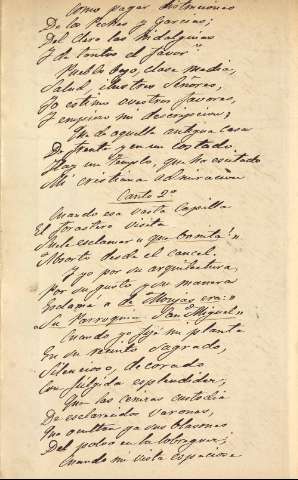 Como pagar distinciones
De los Pechos y Garcias;
Del Clero las hidalguias
Y de tantos el favor?
Pueblo bajo, clase media,
Salud, ilustres Señores,
Yo estimo vuestros favores,
Y empiezo mi descripcion;
Que de aquella antigua casa
De frente y en un costado
Hay un templo, que ha excitado
Mi cristiana admiracion
Canto 2º
Cuando esa vasta Capilla
El forastero visita
Suele esclamar "que bonita!"
Absorto desde el cancel.
Y yo por su arquitectura
Por su gusto y su manera
Esclamo "de Monjas era:"
"Su Parroquia San Miguel"
Cuando yo fijé mi planta
En su recinto sagrado,
Silencioso, decorado
Con fúlgida esplendidez;
Que las cenizas custodia
De esclarecidos varones,
Que ocultan ya sus blasones
Del polvo en la lobreguez;
Cuando mi vista espaciose